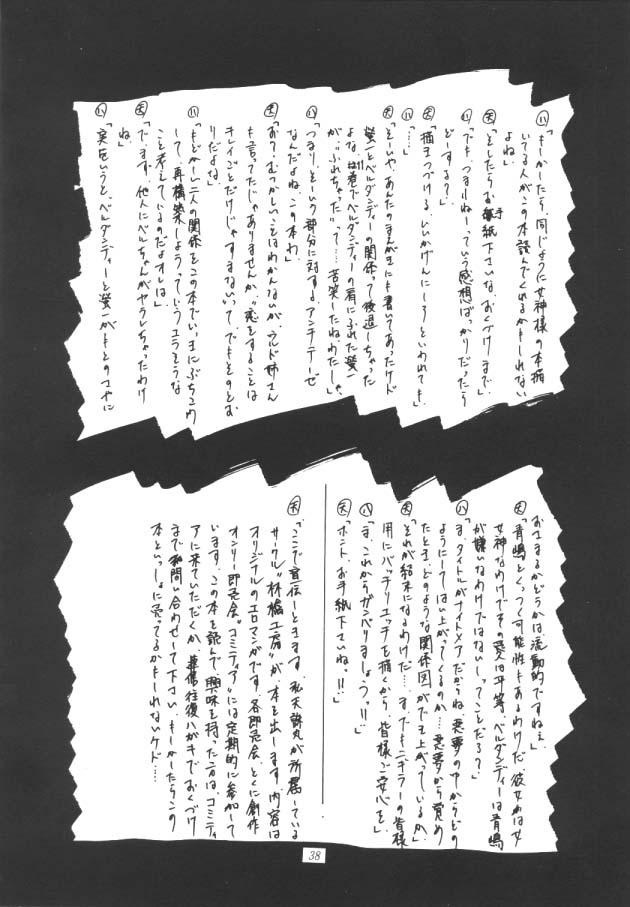 ㋩「もしかしたら、同じように女神様の本描
いてる人がこの本読んでくれるかもしれない
よね。」
㋝「そしたらお手紙下さいな、おくづけまで」
㋩「でも、つまんねーっていう感想ばっかりだったら
どーする?」
㋝「描きつづける、いいかげんにしろといわれても」
㋩「……」
㋝「そーいや、あんたのまんがにも書いてあったけど
螢一とベルダンディーの関係って後退しちゃった
よな、巻でベルダンディーの肩にふれた螢一
が〝ふれちゃった〟って……苦笑したねわたしゃ」
㋩「つまり、そーいう部分に対するアンチテーゼ
なんだよね、この本わ」
㋝「お?むつかしいことはわかんないが、ウルド姉さん
も言ってたじゃありませんか、〝恋をすることは
キレイごとだけじゃすまない〟って、でもそのとお
りだよな」
㋩「もどかしい二人の関係をこの本でいっきにぶちこわ
して、再構築しようっていうエラそうな
こと考えているのだよオレは」
㋝「でます、他人にベルちゃんがヤラレちゃったわけ
ね」
㋩「実をいうと、ベルダンディーと螢一がもとのさやに
おさまるかどうかは、流動的ですねぇ」
㋝「青嶋とくっつく可能性もあるわけだ、彼女わは女
女神なわけでその愛は平等、ベルダンディーは青嶋
が嫌いなわけではないしってことだろ?」
㋩「ま、タイトルがナイトメアだからね、悪夢の中からどの
ようにしてはい上がってくるのか…悪夢から覚め
たとき、どのような関係図ができ上がっているか」
㋝「それが結末になるわけだ…、すでにキニナラーの皆様
用にバッチリエッチを描くから、皆様ご安心を」
㋩「ま、これからガンバりましょうっ!!」
㋝「ホント、お手紙下さいね。!!」
㋝「ここで宣伝しときます、私天誅丸が所属している
サークル〝林檎工房〟が本を出します、内容は
オリジナルのエロマンガです。各即売会、とくに創作
オンリー即売会〝コミティア〟には定期的に参加して
います、この本を読んで興味を持った方は、コミティ
アに来ていただくか、往復ハガキでおくづけ
まで問い合わせて下さい、もしかしたらこの
本といっしょに売ってるかもしれないケド…
38